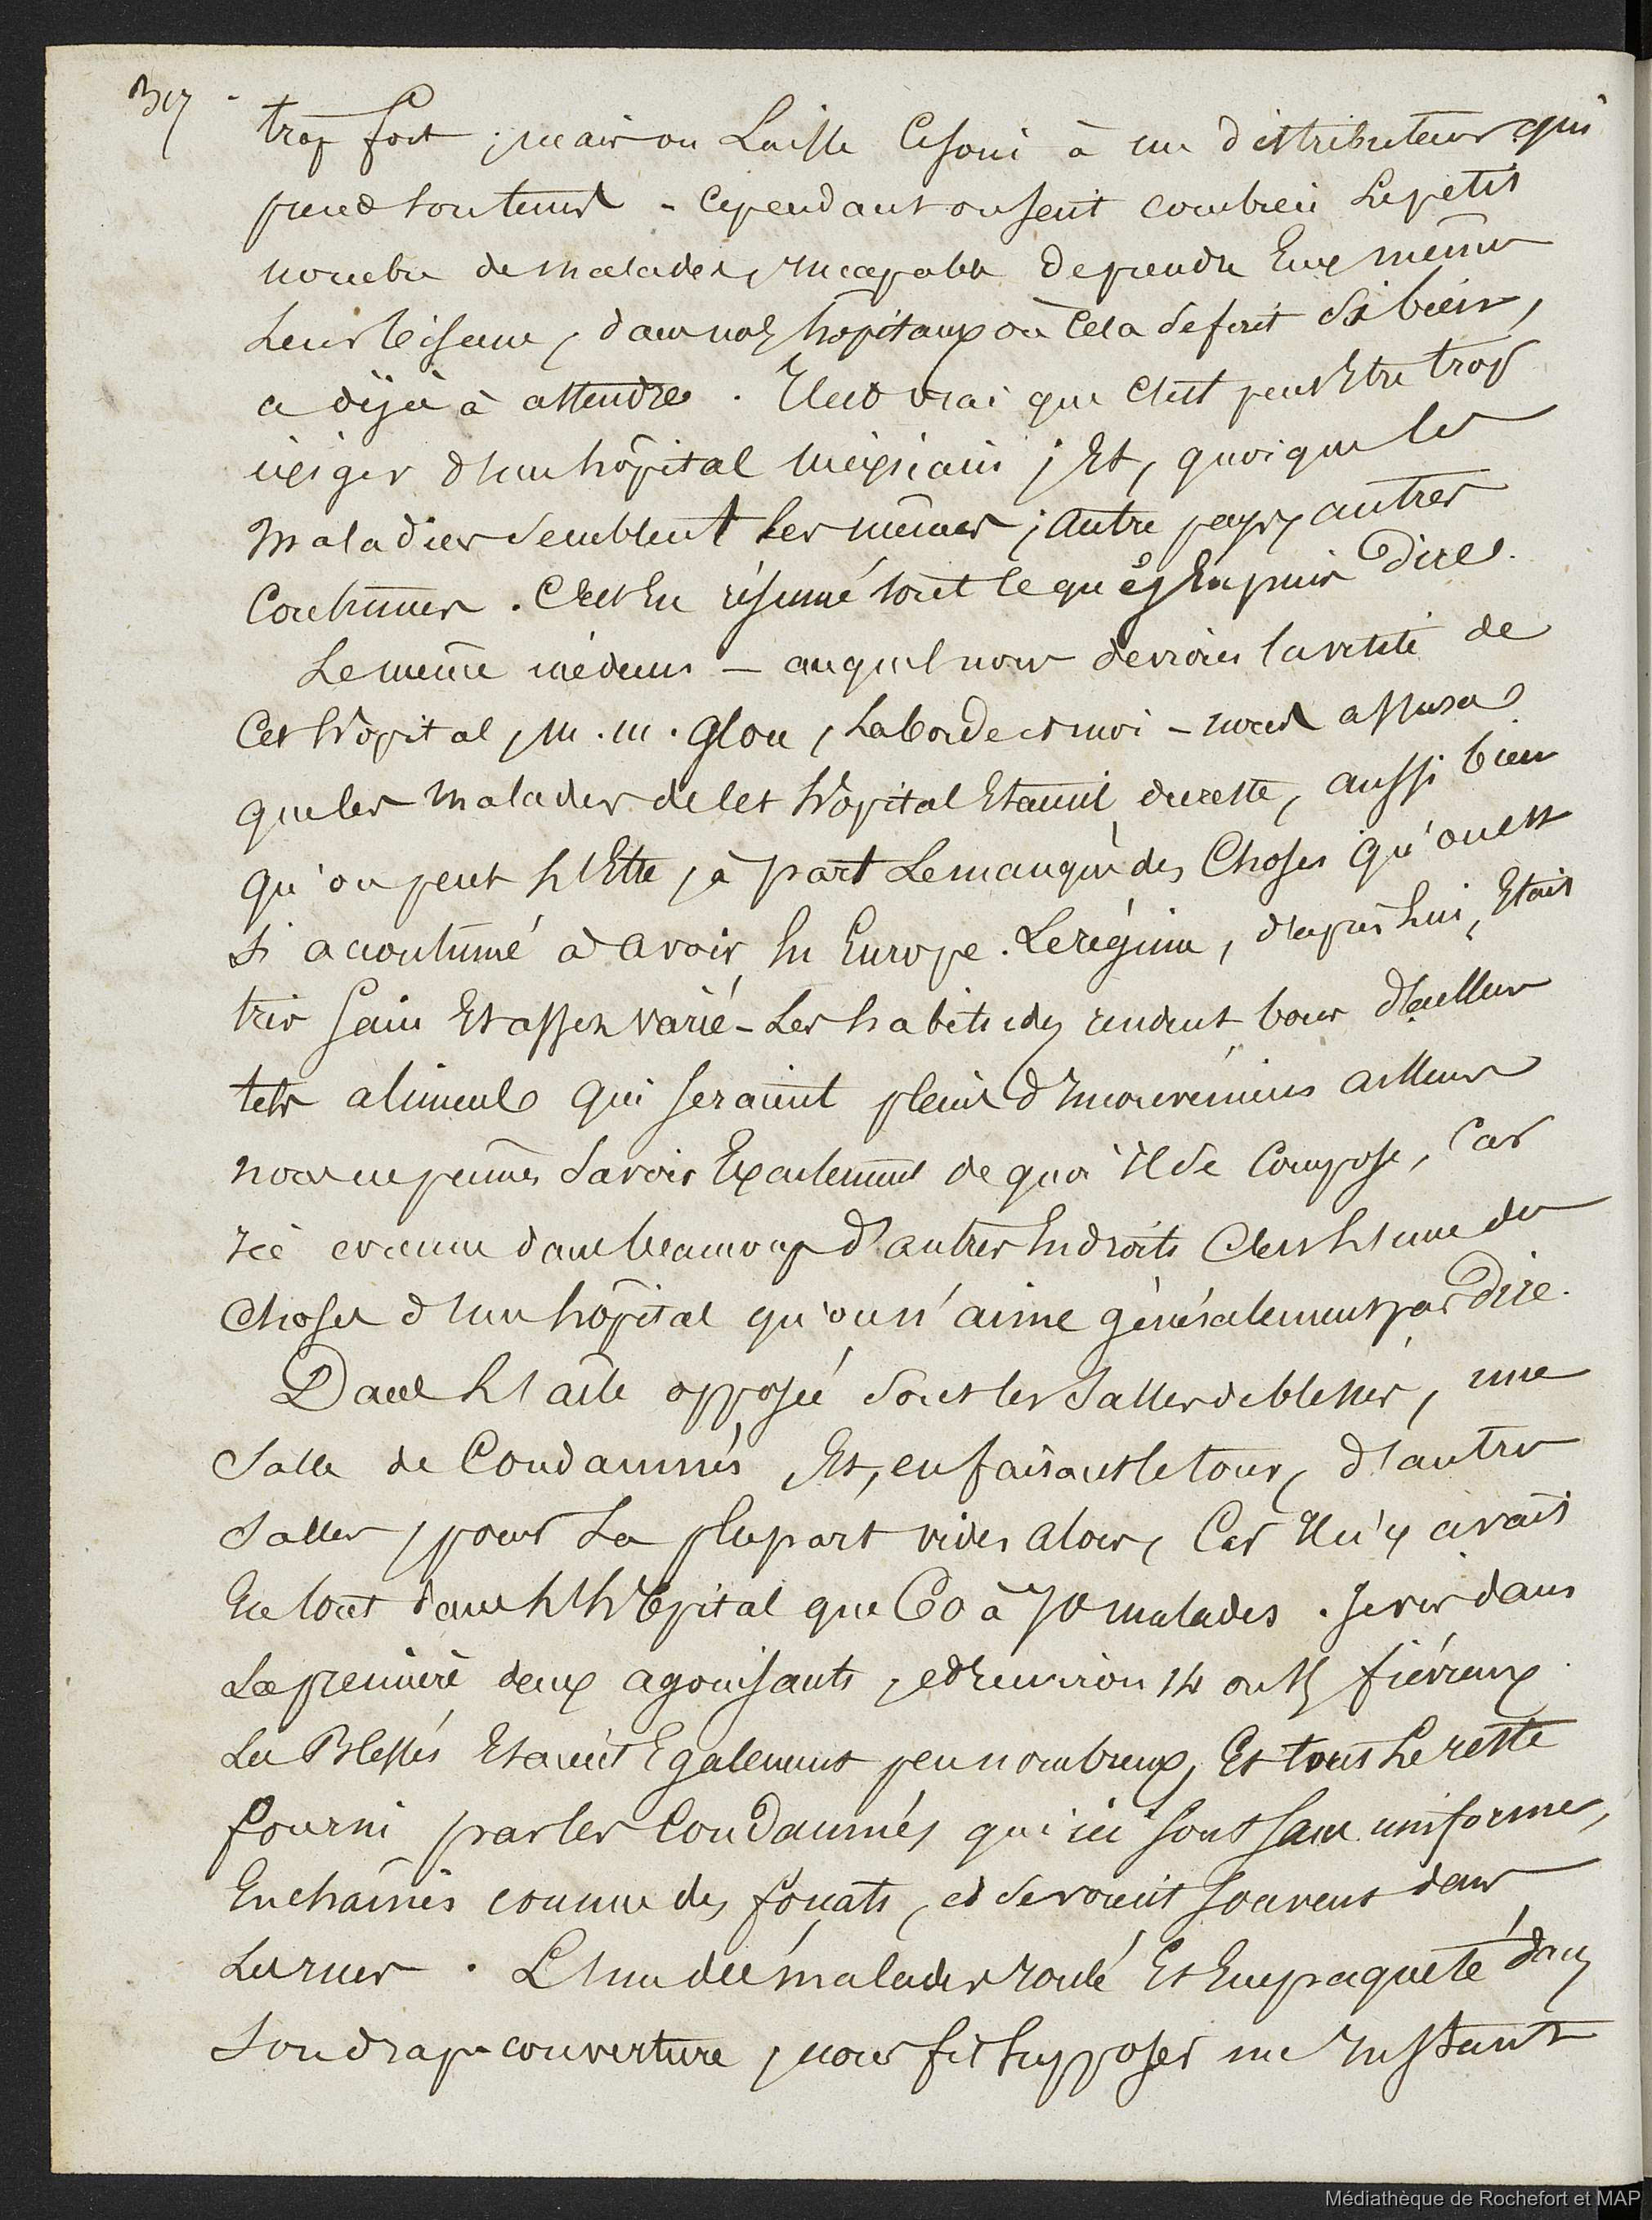 trop fort ; mais on Laisse ce soin à un distributeur qui
prend son tems - cependant on sent combien Le petit
nombre de malades, Incapables de prendre Eux mêmes
Leur tisane, dans nos hôpitaux où cela se fait si bien,
a déjà à attendre. Il est vrai que c'est peut Etre trop
exiger d'un hôpital mexicain ; Et, quoique les
Maladies semblent Les mêmes ; autre pays, autres
Coutumes. C'est En résumé tout ce que j'En puis Dire.
Le même médecin - auquel nous devions la visite de
Cet hôpital, M. M. Glou, Laborde et moi - nous assura
que les malades de cet hôpital Etaient, du reste, aussi bien
qu'on peut l'Etre, à part Le manque des Choses qu'on est
si accoutumé à avoir En Europe. Le régime, d'après Lui, Etait
très sain Et assez varié - Les habitudes rendent bons d'ailleurs
tels aliments qui seraient pleins d'Inconvéniens ailleurs
nous ne pûmes savoir Exactement de quoi Il se Compose, Car
Ici comme dans beaucoup d'autres Endroits C'est L'une des
choses d'un hôpital qu'on n'aime généralement pas Dire.
Dans L'aile opposée sont les salles de blessés, une
Salle de Condamnés Et, en faisant le tour, d'autres
Salles, pour La plupart vides alors, Car Il n'y avait
En tout dans L'hôpital que 60 à 70 malades. Je vis dans
La première deux agonisants, et Environ 14 ou 15 fiévreux.
Les Blessés Etaient Egalement peu nombreux, Et tout Le reste
fourni par les Condamnés qui ici sont sans uniforme,
Enchaînés comme des forçats, et se voient souvent dans
Les rues. L'un des malades roulé Et Empaqueté dans
Son drap-couverture, nous fit supposer un Instant
Médiathèque de Rochefort et MAP